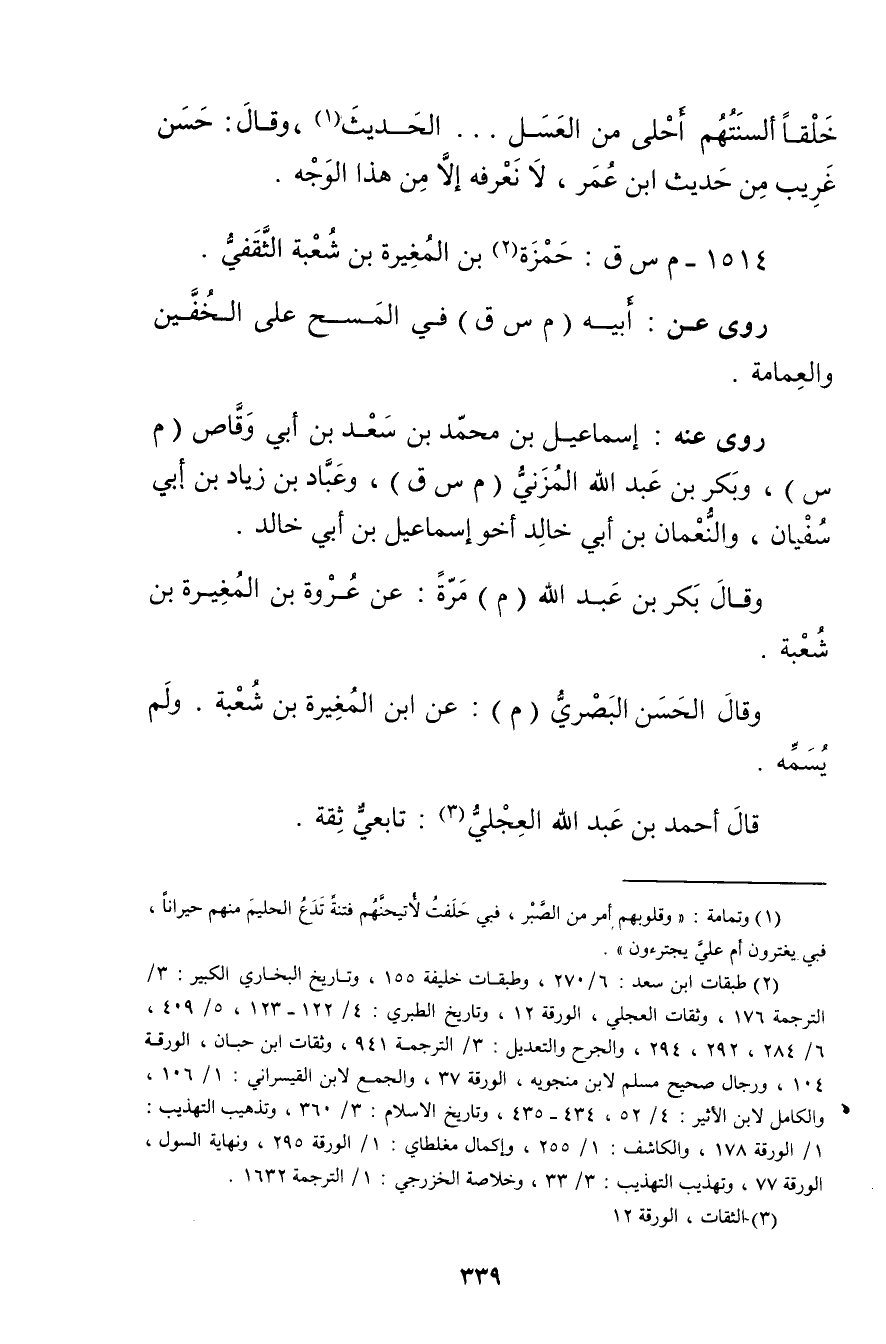 خَلْقاً ألسنَتُهُم أَحْلى من العَسَل ... الحَديثَ(١) ، وقالَ: حَسَن
غَرِيب مِن حَديث ابن عُمَر ، لَا نَعْرفه إلَّا مِن هذا الوَجْه .
١٥١٤ - م س ق : حَمْزَة(٢) بن المُغِيرة بن شُعْبة الثَّقَفيُّ .
روى عن : أَبيه ( م س ق ) في المَسح على الخُفَّين
والعِمامة .
روى عنه : إسماعيل بن محمّد بن سَعْد بن أبي وَقَّاص ( م
س ) ، وبَكر بن عَبد الله المُزَنيُّ ( م س ق ) ، وعَبَّاد بن زياد بن أبي
سُفْيان ، والنُّعْمان بن أبي خالِد أخو إسماعيل بن أبي خالد .
وقالَ بَكر بن عَبد الله ( م ) مَرّةً : عن عُرْوة بن المُغِيرة بن
شُعْبة .
وقالَ الحَسَن البَصْريُّ ( م ) : عن ابن المُغِيرة بن شُعْبة . ولَم
يُسَمِّه .
قالَ أحمد بن عَبد الله العِجْليُّ(٣) : تابعيٌّ ثِقة .
(١) وتمامة : « وقلوبهم أمر من الصَّبْر ، فبي حَلَفتُ لأُتيحنَّهُم فتنةً تَدَعُ الحليمَ منهم حيراناً ،
فبي يغترون أم عليَّ يجترءون » .
(٢) طبقات ابن سعد : ٦/ ٢٧٠ ، وطبقات خليفة ١٥٥ ، وتاريخ البخاري الكبير : ٣/
الترجمة ١٧٦ ، وثقات العجلي ، الورقة ١٢ ، وتاريخ الطبري : ٤/ ١٢٢ - ١٢٣ ، ٥/ ٤٠٩ ،
٦/ ٢٨٤ ، ٢٩٢ ، ٢٩٤ ، والجرح والتعديل : ٣/ الترجمة ٩٤١ ، وثقات ابن حبان ، الورقة
١٠٤ ، ورجال صحيح مسلم لابن منجويه ، الورقة ٣٧ ، والجمع لابن القيسراني : ١/ ١٠٦ ،
والكامل لابن الأثير : ٤/ ٥٢ ، ٤٣٤ - ٤٣٥ ، وتاريخ الاسلام : ٣/ ٣٦٠ ، وتذهيب التهذيب :
١/ الورقة ١٧٨ ، والكاشف : ١/ ٢٥٥ ، وإكمال مغلطاي : ١/ الورقة ٢٩٥ ، ونهاية السول ،
الورقة ٧٧ ، وتهذيب التهذيب : ٣/ ٣٣ ، وخلاصة الخزرجي : ١/ الترجمة ١٦٣٢ .
(٣) الثقات ، الورقة ١٢
٣٣٩